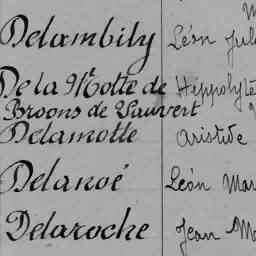 Delambily Léon Jul
De la Motte de Hippolyte
Broons de Vauvert
Delamotte Aristide
Delanoé Léon Mar
Delaroche Jean M